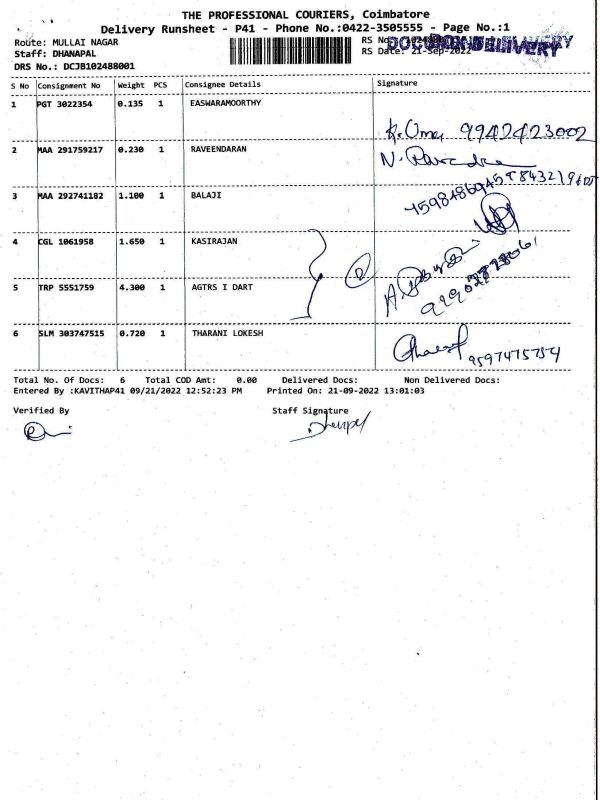 THE PROFESSIONAL COURIERS, Coimbatore
Delivery Runsheet - P41 - Phone No.:0422-3505555 - Page No.:1
Route: MULLAI NAGAR
RS No
Staff: DHANAPAL
RS Date: 21-Sep-2022
DELIVERY
DRS No.: DCJB102488001
S No Consignment No Weight PCS Consignee Details Signature
1 PGT 3022354 0.135 1 EASWARAMOORTHY
K. Uma 9942423002
2 MAA 291759217 0.230 1 RAVEENDARAN
N.
3 MAA 292741182 1.100 1 BALAJI
4 CGL 1061958 1.650 1 KASIRAJAN
2
5 TRP 5551759 4.300 1 AGTRS I DART
A.
6 SLM 303747515 0.720 1 THARANI LOKESH
9597475754
Total No. Of Docs: 6 Total COD Amt: 0.00 Delivered Docs: Non Delivered Docs:
Entered By :KAVITHAP41 09/21/2022 12:52:23 PM Printed On: 21-09-2022 13:01:03
Verified By Staff Signature